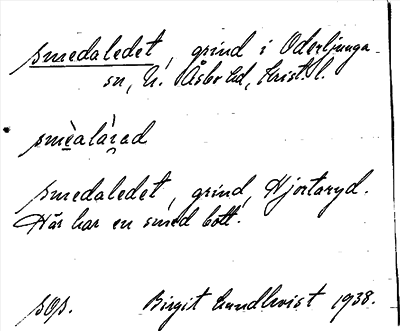 smedaledet, grind i Oderljunga
sn, N. Åsbo hd, Krist. l.
smèalàrad
smedaledet, grind, Hjortaryd.
Här har en smed bott.
sOp. Birgit Lundkvist 1938.